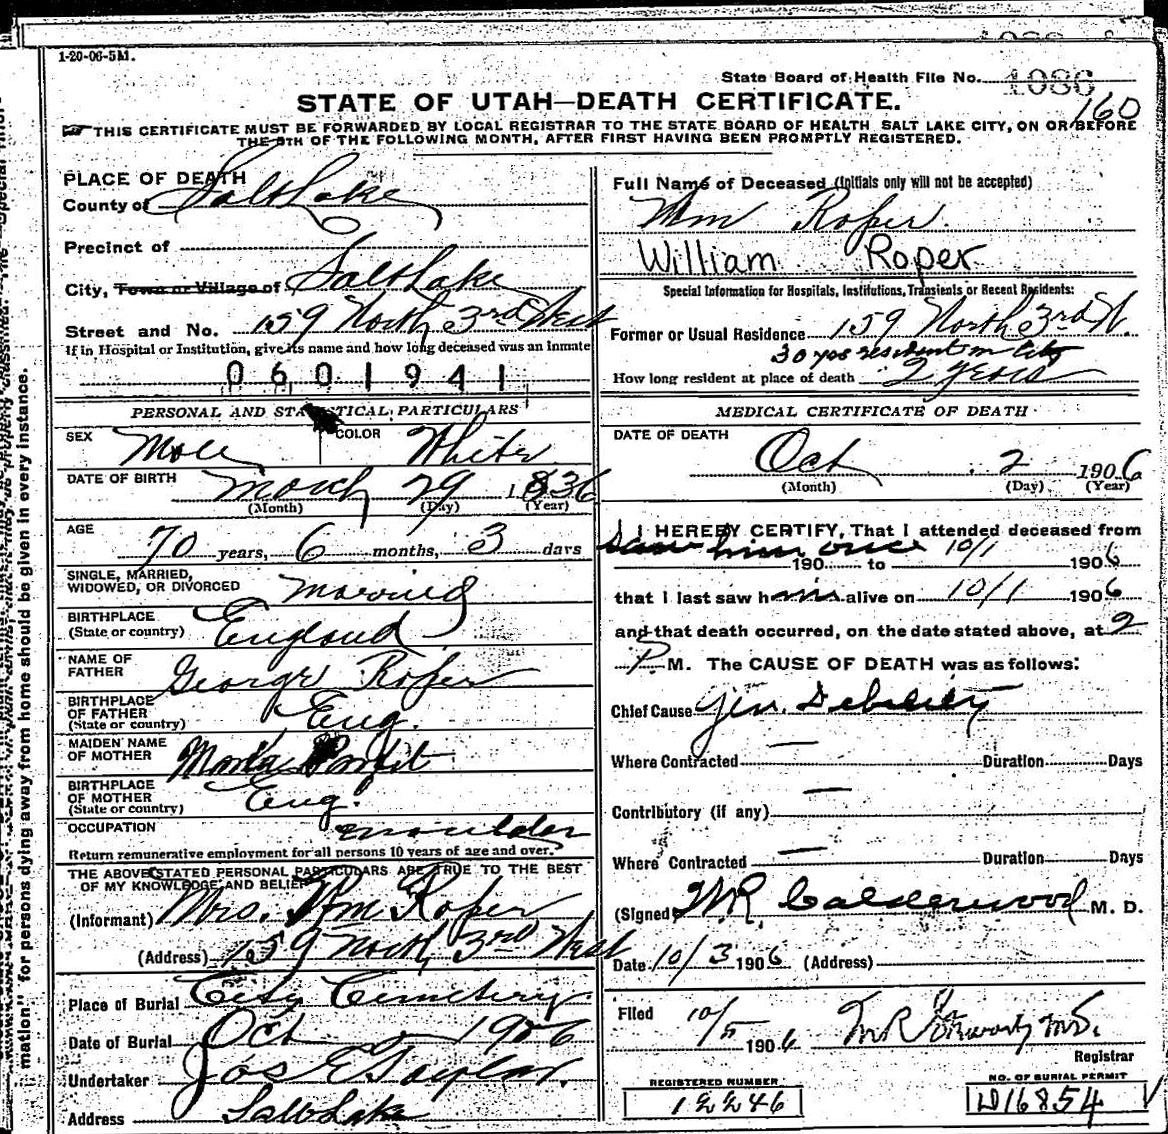 1-20-06-5M.
State Board of Health File No. 1086
160
STATE OF UTAH—DEATH CERTIFICATE.
THIS CERTIFICATE MUST BE FORWARDED BY LOCAL REGISTRAR TO THE STATE BOARD OF HEALTH SALT LAKE CITY, ON OR BEFORE
THE 5TH OF THE FOLLOWING MONTH, AFTER FIRST HAVING BEEN PROMPTLY REGISTERED.
mation" for persons dying away from home should be given in every instance.
PLACE OF DEATH
County of Salt Lake
Precinct of
City, Town or Village of Salt Lake
Street and No. 159 North 3rd West
If in Hospital or Institution, give its name and how long deceased was an inmate
0601941
PERSONAL AND STATISTICAL PARTICULARS
SEX Male COLOR White
DATE OF BIRTH March 29 1836
(Month) (Day) (Year)
AGE
70 years, 6 months, 3 days
SINGLE, MARRIED,
WIDOWED, OR DIVORCED married
BIRTHPLACE
(State or country) England
NAME OF
FATHER George Roper
BIRTHPLACE
OF FATHER
(State or country) Eng.
MAIDEN NAME
OF MOTHER
BIRTHPLACE
OF MOTHER
(State or country) Eng.
OCCUPATION moulder
Return remunerative employment for all persons 10 years of age and over.
THE ABOVE STATED PERSONAL PARTICULARS ARE TRUE TO THE BEST
OF MY KNOWLEDGE AND BELIEF
(Informant) Mrs. Wm Roper
(Address) 159 North 3rd West
Place of Burial City Cemetery
Date of Burial Oct 1906
Undertaker Jos E Taylor.
Address Salt Lake
Full Name of Deceased (Initials only will not be accepted)
Wm Roper
William Roper
Special Information for Hospitals, Institutions, Transients or Recent Residents:
Former or Usual Residence 159 North 3rd W.
30 yrs resident in City
How long resident at place of death 2 years
MEDICAL CERTIFICATE OF DEATH
DATE OF DEATH
Oct 2 1906
(Month) (Day) (Year)
I HEREBY CERTIFY, That I attended deceased from
saw him once 10/1
190 to 1906
that I last saw him alive on 10/1 1906
and that death occurred, on the date stated above, at 2
P. M. The CAUSE OF DEATH was as follows:
Chief Cause Gen. Debility
Where Contracted — Duration Days
Contributory (if any) —
Where Contracted — Duration Days
(Signed) W.R. Calderwood M. D.
Date 10/3 1906 (Address)
Filed 10/5 1906
Registrar
REGISTERED NUMBER
12246
NO. OF BURIAL PERMIT
D16854